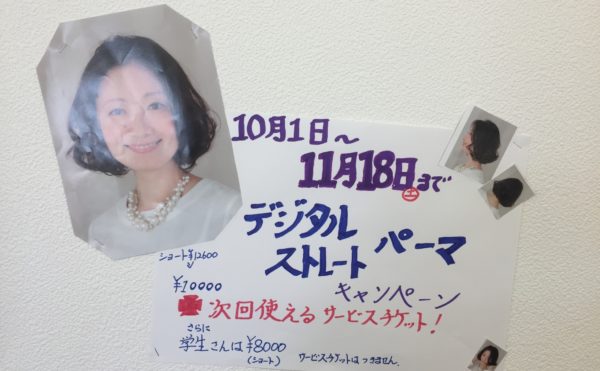 10月1日～
11月18日㊏まで
デジタル
ストレート パーマ
キャンペーン
ショート ¥12600
↓
¥10000
次回使える サービスチケット!
さらに
学生さんは¥8000
(ショート)
サービスチケットはつきません。